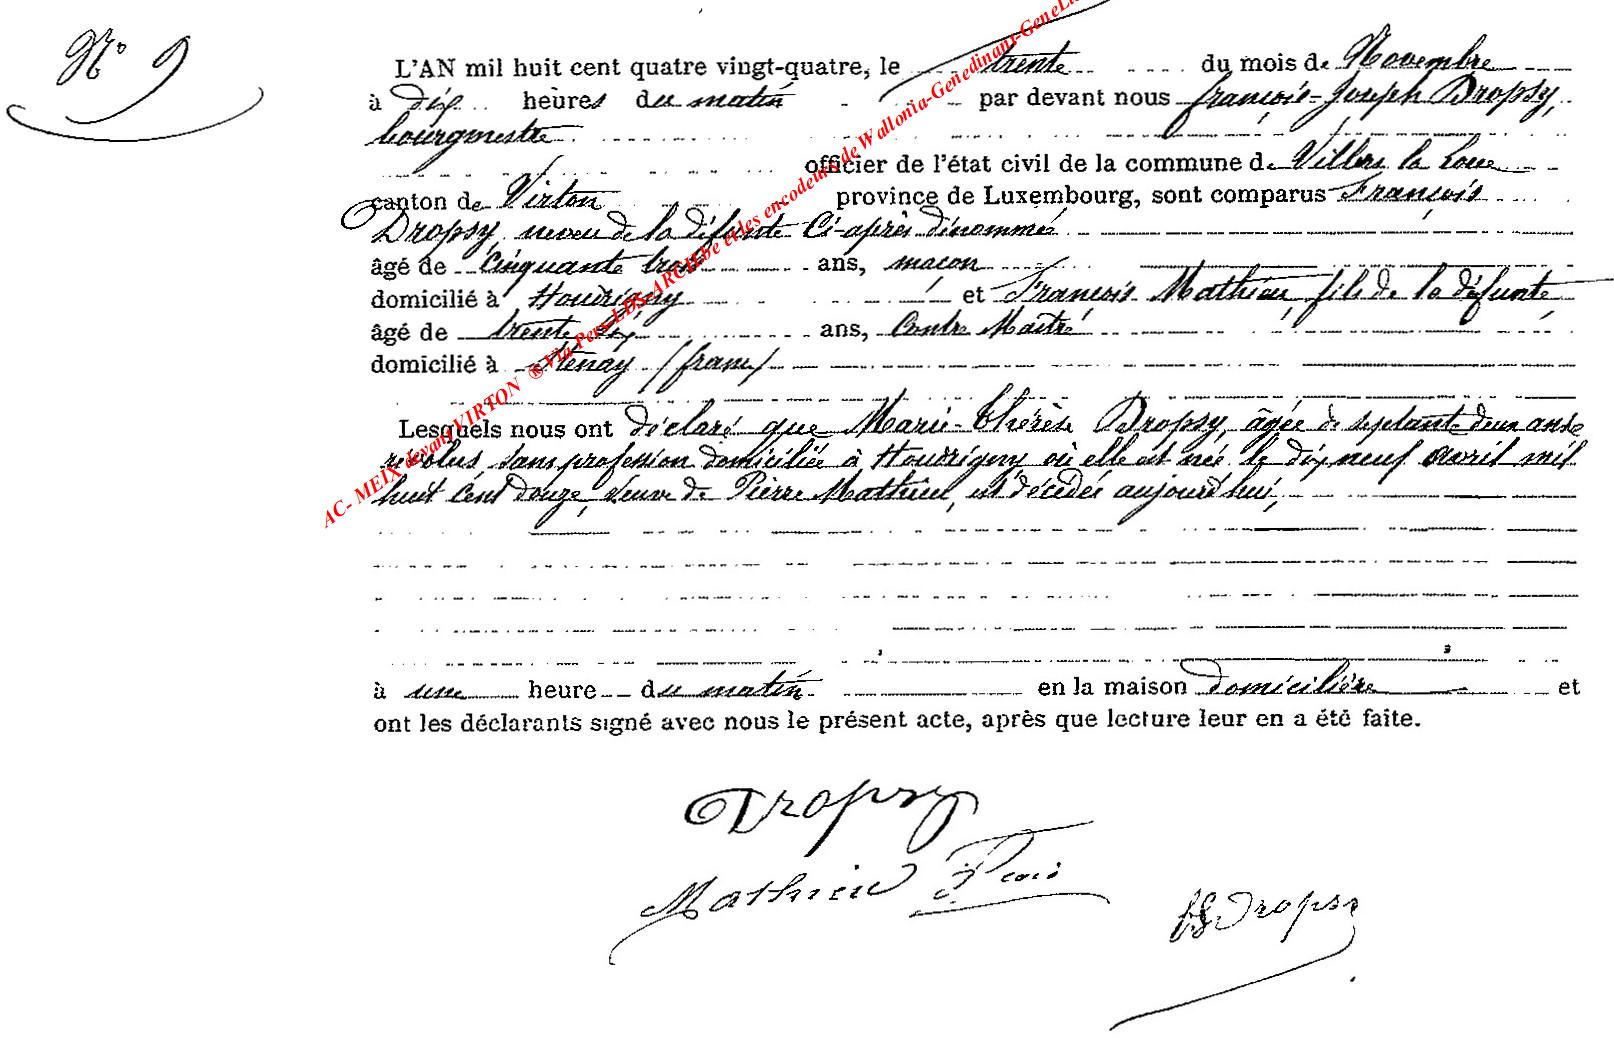 N° 9
L'AN mil huit cent quatre vingt-quatre, le trente du mois de Novembre
à dix heures du matin par devant nous françois-Joseph Dropsy,
bourgmestre
officier de l'état civil de la commune de Villers la Loue
canton de Virton province de Luxembourg, sont comparus François
Dropsy, neveu de la défunte Ci-après dénommée
âgé de Cinquante trois ans, maçon
domicilié à Houdrigny et François Mathieu, fils de la défunte
âgé de trente six ans, Contre Maitre
domicilié à Stenay (france)
Lesquels nous ont déclaré que Marie-Thérèse Dropsy, âgée de septante deux ans
révolus, sans profession domiciliée à Houdrigny où elle est née le dix neuf avril mil
huit cent douze, veuve de Pierre Mathieu, est décédée aujourd'hui,
à une heure du matin en la maison domicilière et
ont les déclarants signé avec nous le présent acte, après que lecture leur en a été faite.
Dropsy
Mathieu Fcois
fJ Dropsy
AC- MEIX devant VIRTON ® Via Pers-LDS-ARCHbe et les encodeurs de Wallonia-Genedinant-GeneLux